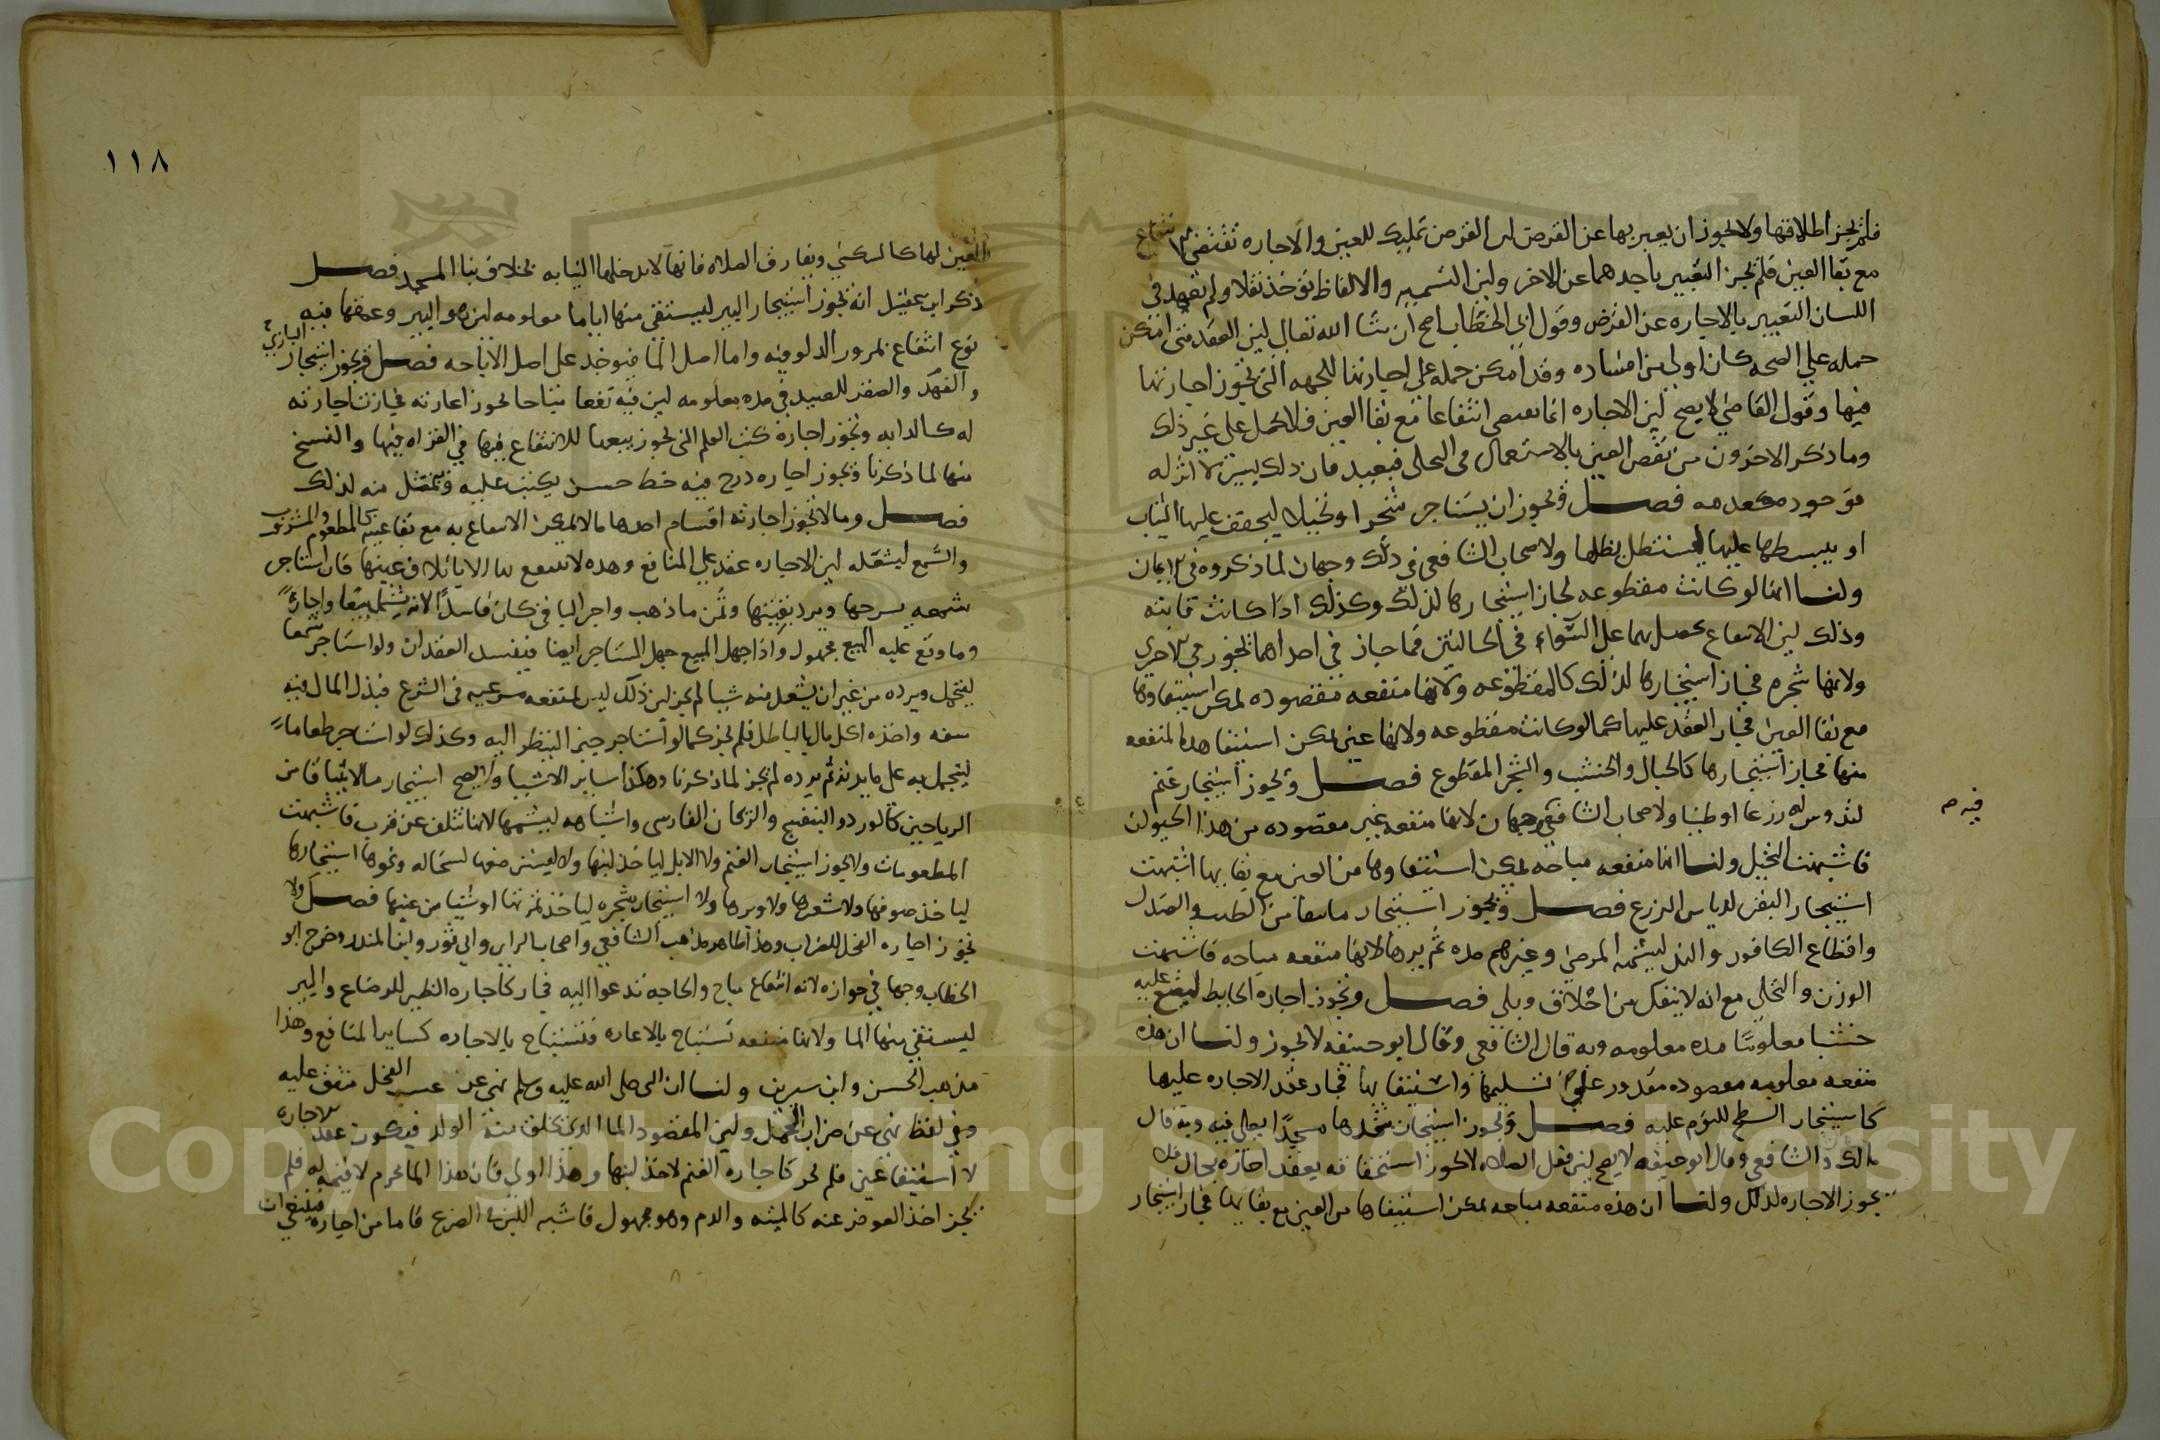 فلم يجز اطلاقها ولا يجوز ان يعبر بها عن القرض لان القرض تمليك للعين والاجاره تقتضي الانتفاع
مع بقا العين فلم يجز التعبير باحدهما عن الاخر ولين التسميه والالفاظ تؤخذ نقلا ولم يعهد في
اللسان التعبير بالاجاره عن القرض وقول ابي الخطاب اصح ان شا الله تعالى لين العقد متى امكن
حمله علي الصحه كان اولي من افساده وقد امكن حمله علي اجارتها للجهه التي تجوز اجارتها
فيها وقول القاضي لا يصح لين الاجاره انما تقتضي انتفاعا مع بقا العين فلا تحمل على غير ذلك
وما ذكر الاخرون من نقص العين بالاستعمال في التحلي فبعيد فان ذلك يسير لا اثر له
فوجوده كعدمه فصل ويجوز ان يستاجر شجرا ونخيلا ليجفف عليها الثياب
او يبسطها عليها ليستظل بظلها ولاصحاب الشافعي في ذلك وجهان لما ذكروه في الاثمان
ولنا انها لو كانت مقطوعه لجاز استيجارها لذلك وكذلك اذا كانت ثابته
وذلك لين الانتفاع يحصل بهما على السواء في الحالتين فما جاز في احداهما يجوز في الاخري
ولانها شجره فجاز استيجارها لذلك كالمقطوعه ولانها منفعه مقصوده يمكن استيفاوها
مع بقا العين فجاز العقد عليها كما لو كانت مقطوعه ولانها عين يمكن استيفا هذه المنفعه
منها فجاز استيجارها كالحبال والخشب والشجر المقطوع فصل ويجوز استيجار غنم
لتدوس له زرعا او طينا ولاصحاب الشافعي فيه وجهان لانها منفعه غير مقصوده من هذا الحيوان
فاشبهت النخيل ولنا انها منفعه مباحه يمكن استيفاوها من العين مع بقايها اشبهت
استيجار البقر لدياس الزرع فصل ويجوز استيجار ما يبقا من الطيب والصندل
واقطاع الكافور والند ليشمه المرضي وغيرهم مده ثم يردها لانها منفعه مباحه فاشبهت
الوزن والتحلي مع انه لا ينفك من اخلاق وبلي فصل ويجوز اجارة الحايط ليضع عليه
خشبا معلوما مده معلومه وبه قال الشافعي وقال ابو حنيفه لا يجوز ولنا ان هذه
منفعه معلومه مقصوده مقدور علي تسليمها واستيفايها فجاز عقد الاجاره عليها
كاستيجار السطح للنوم عليه فصل ويجوز استيجار دار يتخذها مسجدًا يصلي فيه وبه قال
مالك والشافعي وقال ابو حنيفه لا يصح لين فعل الصلاه لا يجوز استحقاقه بعقد اجازه بحال فلا
يجوز الاجاره لذلك ولنا ان هذه منفعه مباحه يمكن استيفاها من العين مع بقايها فجاز استيجار
العين لها كالسكني ويفارق الصلاه فانها لا تدخلها النيابه بخلاف بنا المسجد فصل
ذكر ابن عقيل انه يجوز استيجار البير ليستقي منها اياما معلومه لين هوا البير وعمقها فيه
نوع انتفاع بمرور الدلو فيه واما اصل الما فيوخذ على اصل الاباحه فصل ويجوز استيجار البازي
والفهد والصقر للصيد في مده معلومه لين فيه نفعا مباحا تجوز اعارته فجازت اجارته
له كالدابه وتجوز اجارة كتب العلم التي يجوز بيعها للانتفاع بها في القراه فيها والنسخ
منها لما ذكرنا ويجوز اجاره درج فيه خط حسن يكتب عليه ويتمثل منه لذلك
فصل وما لا تجوز اجارته اقسام احدها ما لا يمكن الانتفاع به مع بقا عينه كالمطعوم والمشروب
والشمع ليشعله لين الاجاره عقد علي المنافع وهذه لا ينتفع بها الا باتلاف عينها فان استاجر
شمعه يسرجها ويرد بقيتها وثمن ما ذهب واجر الباقي كان فاسدًا لانه يشمل بيعا واجارةً
وما وقع عليه البيع مجهول واذا جهل المبيع جهل المستاجر ايضا فيفسد العقدان ولو استاجر شمعا
ليتجمل به ويرده من غير ان يشعل منه شيا لم يجز لين ذلك ليس بمنفعه مرعيه في الشرع فبذل المال فيه
سفه واخذه اكل مال بالباطل فلم يجز كما لو استاجر خبزا لينظر اليه وكذلك لو استاجر طعاماً
ليتجمل به على مايدته ثم يرده لم يجز لما ذكرنا وهكذا ساير الاشيا ولا يصح استيجار ما لا يبقا من
الرياحين كالورد والبنفسج والريحان الفارسي واشباهه ليشمها لانها تتلف عن قرب فاشبهت
المطعومات ولا يجوز استيجار الغنم ولا الابل لياخذ لبنها ولا ليسترضعها لسخاله ونحوها استيجارها
لياخذ صوفها ولا شعرها ولا وبرها ولا استيجار شجره لياخذ ثمرتها او شيا من عينها فصل ولا
تجوز اجاره الفحل للضراب وهذا ظاهر مذهب الشافعي واصحاب الراي وابي ثور وابن المنذر وخرج ابو
الخطاب وجها في جوازه لانه انتفاع مباح والحاجه تدعوا اليه فجاز كاجاره الظير للرضاع والبير
ليستقي منها الما ولانها منفعه تستباح بالاعاره فتستباح بالاجاره كساير المنافع وهذا
مذهب الحسن وابن سيرين ولنا ان النبي صلى الله عليه وسلم نهي عن عسب الفحل متفق عليه
وفي لفظ نهي عن ضراب الجمل ولين المقصود الما الذي يخلق منه الولد فيكون عقد الاجاره
لاستيفا عين فلم يجز كاجارة الغنم لاخذ لبنها وهذا اولي فان هذا الما محرم لا قيمه له فلم
يجز اخذ العوض عنه كالميته والدم وهو مجهول فاشبه اللبن في الضرع فاما من اجازه فينبغي ان
١١٨